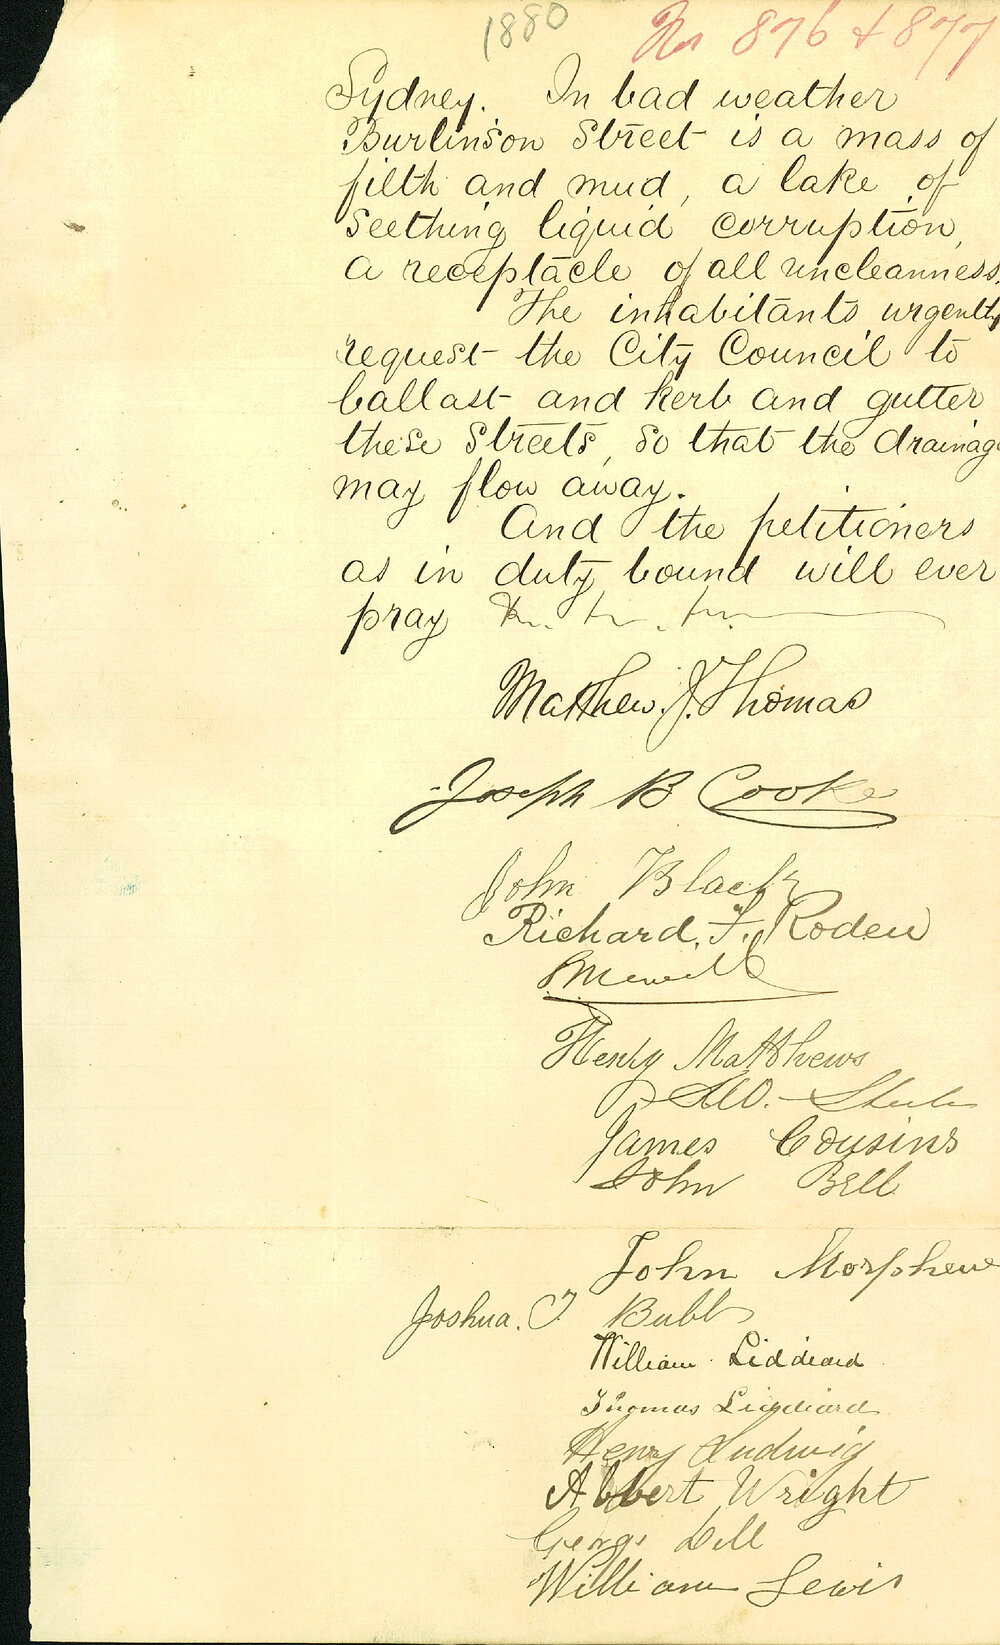 1880
Nos 876 & 877
Sydney. In bad weather
Burlinson Street is a mass of
filth and mud, a lake of
seething liquid corruption,
a receptacle of all uncleanness.
The inhabitants urgently
request the City Council to
ballast and kerb and gutter
these streets, so that the drainage
may flow away.
And the petitioners
as in duty bound will ever
pray
Matthew. J. Thomas
Joseph B Cooke
John Black
Richard. F. Roden
Henry Matthews
Geo.
James Cousins
John Bell
John Morphew
Joshua. T Bubb
William Liddiard
Thomas Liddiard
Henry Ludwig
Albert Wright
George Dell
William Lewis